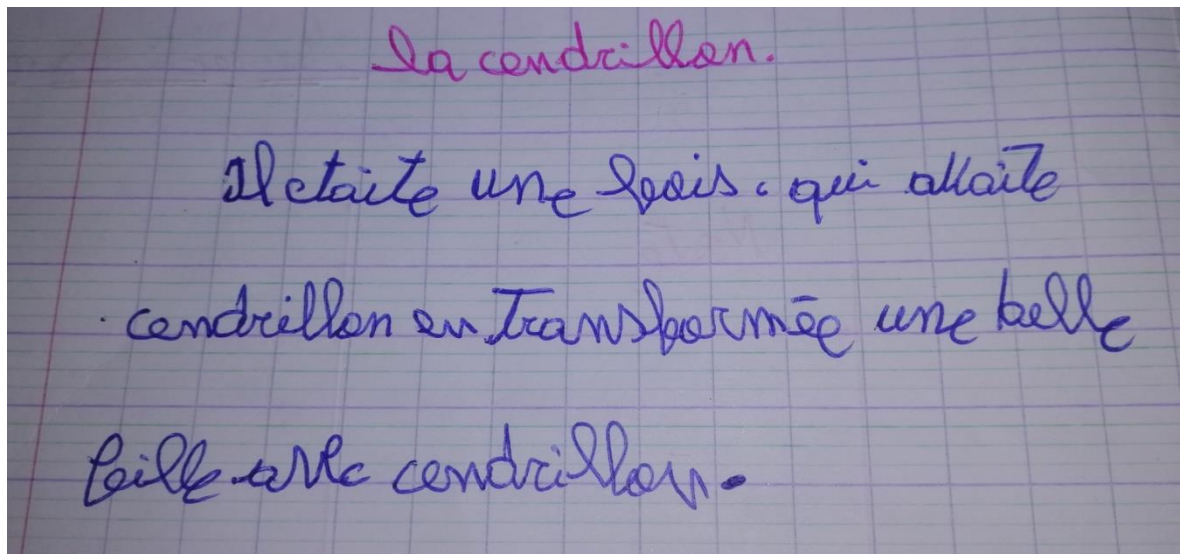 la cendrillon.
Il etaite une fois. qui allaite
. cendrillon en transformée une belle
fille avec cendrillon.